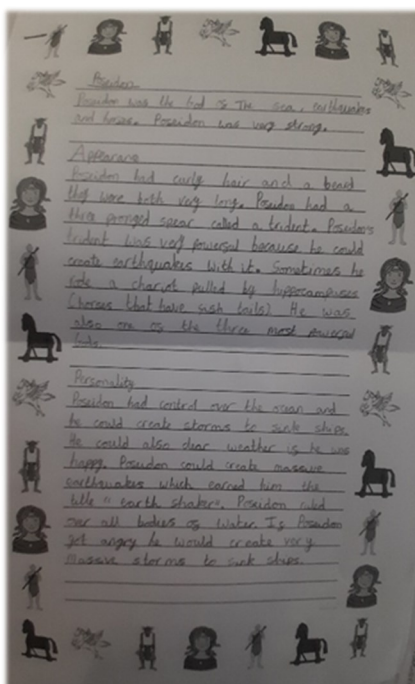 Poseidon
Poseidon was the God of The sea, earthquakes
and horses. Poseidon was very strong.
Appearance
Poseidon had curly hair and a beard
they were both very long. Poseidon had a
three pronged spear called a trident. Poseidon's
trident was very powerful because he could
create earthquakes with it. Sometimes he
rode a chariot pulled by hippocampuses
(horses that have fish tails). He was
also one of the three most powerful
Personality
Poseidon had control over the ocean and
he could create storms to sink ships.
He could also clear weather if he was
happy. Poseidon could create massive
earthquakes which earned him the
title "earth shaker". Poseidon ruled
over all bodies of water. If Poseidon
got angry he would create very
massive storms to sink ships.